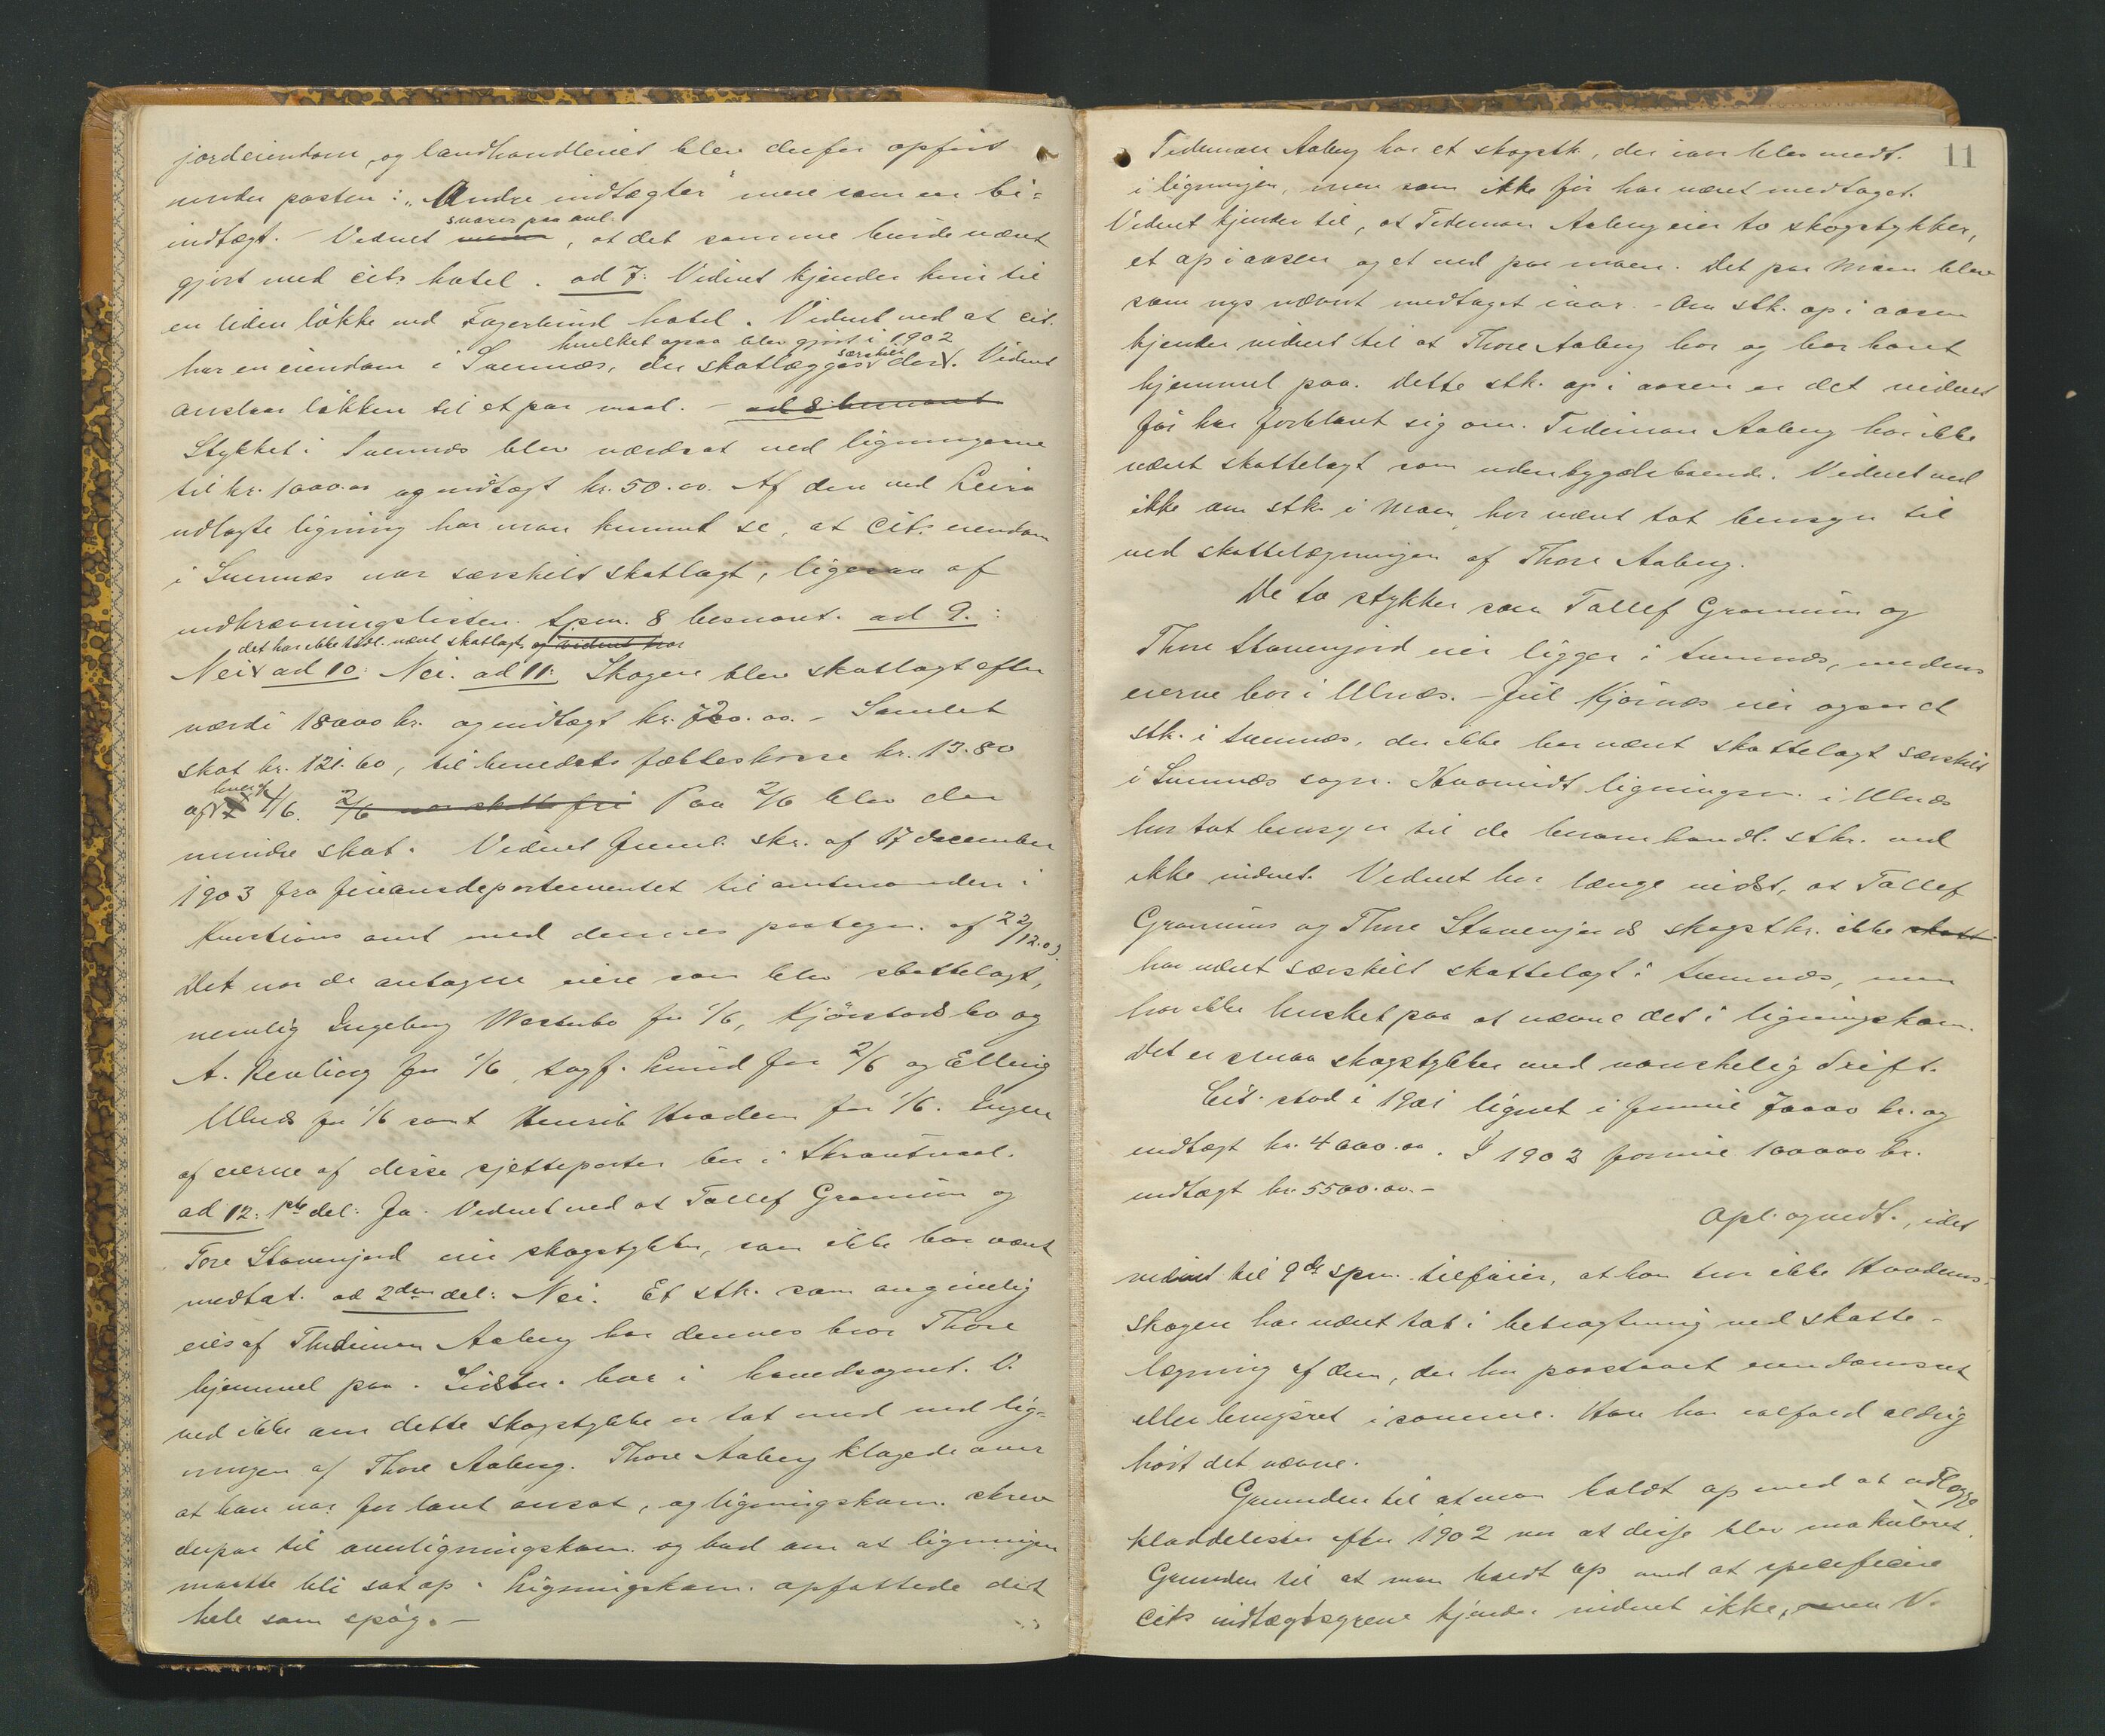 jordeiendom, og landhandleriet blev derfor opført
under posten: „Andre indtægter" mere som en bi-
svarer paa anl.
indtægt. - Vidnet mener, at det samme burde været
gjort med cit.s hotel. ad 7: Vidnet kjender kun til
en liden løkke ved Fagerlund hotel. Vidnet ved at cit.
hvilket ogsaa blev gjort i 1902
har en eiendom i Svennæs, der skatlægges særskilt der. Vidnet
anslaar løkken til et par maal. - ad 8: besvaret
Stykket i Svennæs blev værdsat ved ligningerne
til kr. 1000.00 og indtægt kr. 50.00. Af den ved Leira
udlagte ligning har man kunnet se, at cit.s eiendom
i Svennæs var særskilt skatlagt, ligesaa af
indkrævningslisten. Spm. 8 besvaret. ad 9.:
det har ikke været skatlagt, og vidnet har
Nei ad 10: Nei. ad 11: Skogen blev skatlagt efter
værdi 18000 kr. og indtægt kr. 720.00. - Samlet
skat kr. 121.60, til herredets fælleskasse kr. 13.80
hver
af 4/6. 2/6 var skattefri Paa 2/6 blev der
mindre skat. Vidnet freml. skr. af 17 december
1903 fra finansdepartementet til amtmanden i
Kristians amt med dennes paategn. af 22/12.03.
Det var de antagne eiere som blev skattelagt,
nemlig Ingeborg Westerbo for 1/6, Kjørstads bo og
A. for 1/6, sagf. Lund for 2/6 og Elling
Ulnæs for 1/6 samt Henrik Hovden for 1/6. Ingen
af eierne af disse sjetteparter bor i Skrautvaal.
ad 12: 1ste del: Ja. Vidnet ved at Tollef Granum og
Tore Stavenjord eier skogstykker, som ikke har været
medtat. ad 2den del: Nei. Et stk. som angivelig
eies af Thideman Aaberg har dennes bror Thore
hjemmel paa. Sidstn. bor i hovedsognet. V.
ved ikke om dette skogstykke er tat med ved lig-
ningen af Thore Aaberg. Thore Aaberg klagede over
at han var for lavt ansat, og ligningskom. skrev
derpaa til overligningskom. og bad om at ligningen
maatte bli sat op. Ligningskom. opfattede det
hele som spøg. -
11
Tideman Aaberg har et skogstk., der iaar blev medt.
i ligningen, men som ikke før har været medtaget.
Vidnet kjender til, at Tideman Aaberg eier to skogstykker,
et op i aasen og et ned paa moen. Det paa Moen blev
som nys nævnt medtaget iaar. - Om stk. op i aasen
kjender vidnet til at Thore Aaberg har og har havt
hjemmel paa. Dette stk. op i aasen er det vidnet
før har forklaret sig om. Tideman Aaberg har ikke
været skattelagt som udenbygdsboende. Vidnet ved
ikke om stk. i Moen har været tat hensyn til
ved skattelægningen af Thore Aaberg.
De to stykker som Tollef Granum og
Thore Stavenjord eier ligger i Svennæs, medens
eierne bor i Ulnæs. - Juul Kjørnæs eier ogsaa et
stk. i Svennæs, der ikke har været skattelagt særskilt
i Svennæs sogn. Hvorvidt ligningen i Ulnæs
har tat hensyn til de heromhandl. stkr. ved
ikke vidnet. Vidnet har længe vidst, at Tollef
Granums og Thore Stavenjords skogstkr. ikke skatt
har været særskilt skattelagt i Svennæs, men
har ikke husket paa at nævne det i ligningskom.
Det er smaa skogstykker med vanskelig drift.
Cit. stod i 1901 lignet i formue 70000 kr. og
indtægt kr. 4000.00. I 1903 formue 100000 kr.
indtægt kr. 5500.00. -
Opl. og vedt., idet
vidnet til 9de spm. tilføier, at han tror ikke Hovdens-
skogen har været tat i betragtning ved skatte-
lægning af dem, der har paastaaet eiendomsret
eller brugsret i samme. Han har ialfald aldrig
hørt det nævne.
Grunden til at man holdt op med at udlægge
kladdelister efter 1902 var at disse blev makuleret.
Grunden til at man holdt op med at specificere
cit.s indtægtsgrene kjender vidnet ikke, men V.